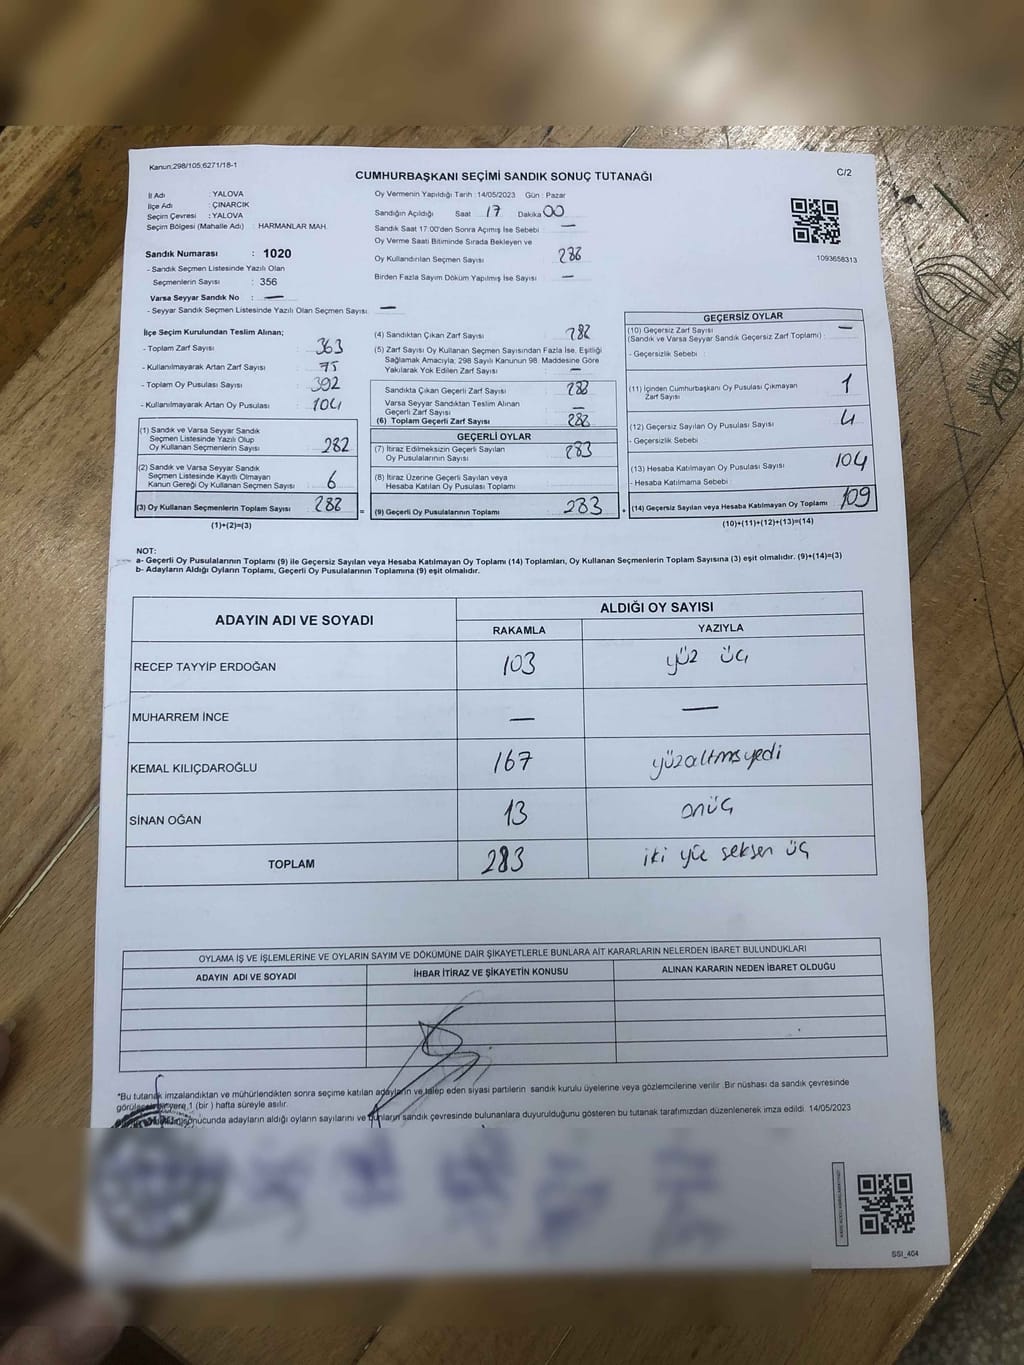 Kanun:298/105;6271/18-1
CUMHURBAŞKANI SEÇİMİ SANDIK SONUÇ TUTANAĞI
C/2
İl Adı : YALOVA
İlçe Adı : ÇINARCIK
Seçim Çevresi : YALOVA
Seçim Bölgesi (Mahalle Adı) : HARMANLAR MAH.
Sandık Numarası : 1020
- Sandık Seçmen Listesinde Yazılı Olan
Seçmenlerin Sayısı : 356
Varsa Seyyar Sandık No : —
- Seyyar Sandık Seçmen Listesinde Yazılı Olan Seçmen Sayısı : —
Oy Vermenin Yapıldığı Tarih : 14/05/2023 Gün : Pazar
Sandığın Açıldığı Saat 17 Dakika 00
Sandık Saat 17:00'den Sonra Açımış İse Sebebi —
Oy Verme Saati Bitiminde Sırada Bekleyen ve
Oy Kullandırılan Seçmen Sayısı 288
Birden Fazla Sayım Döküm Yapılmış İse Sayısı —
1093658313
İlçe Seçim Kurulundan Teslim Alınan;
- Toplam Zarf Sayısı : 363
- Kullanılmayarak Artan Zarf Sayısı : 75
- Toplam Oy Pusulası Sayısı : 392
- Kullanılmayarak Artan Oy Pusulası : 104
(1) Sandık ve Varsa Seyyar Sandık
Seçmen Listesinde Yazılı Olup
Oy Kullanan Seçmenlerin Sayısı : 282
(2) Sandık ve Varsa Seyyar Sandık
Seçmen Listesinde Kayıtlı Olmayan
Kanun Gereği Oy Kullanan Seçmen Sayısı : 6
(3) Oy Kullanan Seçmenlerin Toplam Sayısı : 288
(1)+(2)=(3)
(4) Sandıktan Çıkan Zarf Sayısı : 288
(5) Zarf Sayısı Oy Kullanan Seçmen Sayısından Fazla İse, Eşitliği
Sağlamak Amacıyla; 298 Sayılı Kanunun 98. Maddesine Göre
Yakılarak Yok Edilen Zarf Sayısı : —
Sandıkta Çıkan Geçerli Zarf Sayısı : 288
Varsa Seyyar Sandıktan Teslim Alınan
Geçerli Zarf Sayısı : —
(6) Toplam Geçerli Zarf Sayısı : 288
GEÇERLİ OYLAR
(7) İtiraz Edilmeksizin Geçerli Sayılan
Oy Pusulalarının Sayısı : 283
(8) İtiraz Üzerine Geçerli Sayılan veya
Hesaba Katılan Oy Pusulası Toplamı :
= (9) Geçerli Oy Pusulalarının Toplamı : 283 +
GEÇERSİZ OYLAR
(10) Geçersiz Zarf Sayısı
(Sandık ve Varsa Seyyar Sandık Geçersiz Zarf Toplamı) : —
- Geçersizlik Sebebi :
(11) İçinden Cumhurbaşkanı Oy Pusulası Çıkmayan
Zarf Sayısı : 1
(12) Geçersiz Sayılan Oy Pusulası Sayısı : 4
- Geçersizlik Sebebi :
(13) Hesaba Katılmayan Oy Pusulası Sayısı : 104
- Hesaba Katılmama Sebebi :
(14) Geçersiz Sayılan veya Hesaba Katılmayan Oy Toplamı : 109
(10)+(11)+(12)+(13)=(14)
NOT:
a- Geçerli Oy Pusulalarının Toplamı (9) ile Geçersiz Sayılan veya Hesaba Katılmayan Oy Toplamı (14) Toplamları, Oy Kullanan Seçmenlerin Toplam Sayısına (3) eşit olmalıdır. (9)+(14)=(3)
b- Adayların Aldığı Oyların Toplamı, Geçerli Oy Pusulalarının Toplamına (9) eşit olmalıdır.
ADAYIN ADI VE SOYADI
ALDIĞI OY SAYISI
RAKAMLA YAZIYLA
RECEP TAYYİP ERDOĞAN 103 yüz üç
MUHARREM İNCE — —
KEMAL KILIÇDAROĞLU 167 yüzaltmışyedi
SİNAN OĞAN 13 onüç
TOPLAM 283 iki yüz seksen üç
OYLAMA İŞ VE İŞLEMLERİNE VE OYLARIN SAYIM VE DÖKÜMÜNE DAİR ŞİKAYETLERLE BUNLARA AİT KARARLARIN NELERDEN İBARET BULUNDUKLARI
ADAYIN ADI VE SOYADI İHBAR İTİRAZ VE ŞİKAYETİN KONUSU ALINAN KARARIN NEDEN İBARET OLDUĞU
*Bu tutanak imzalandıktan ve mühürlendikten sonra seçime katılan adayların ve talep eden siyasi partilerin sandık kurulu üyelerine veya gözlemcilerine verilir. Bir nüshası da sandık çevresinde
görülecek bir yere 1 (bir) hafta süreyle asılır.
sonucunda adayların aldığı oyların sayılarını ve bunların sandık çevresinde bulunanlara duyurulduğunu gösteren bu tutanak tarafımızdan düzenlenerek imza edildi. 14/05/2023
SSI_404